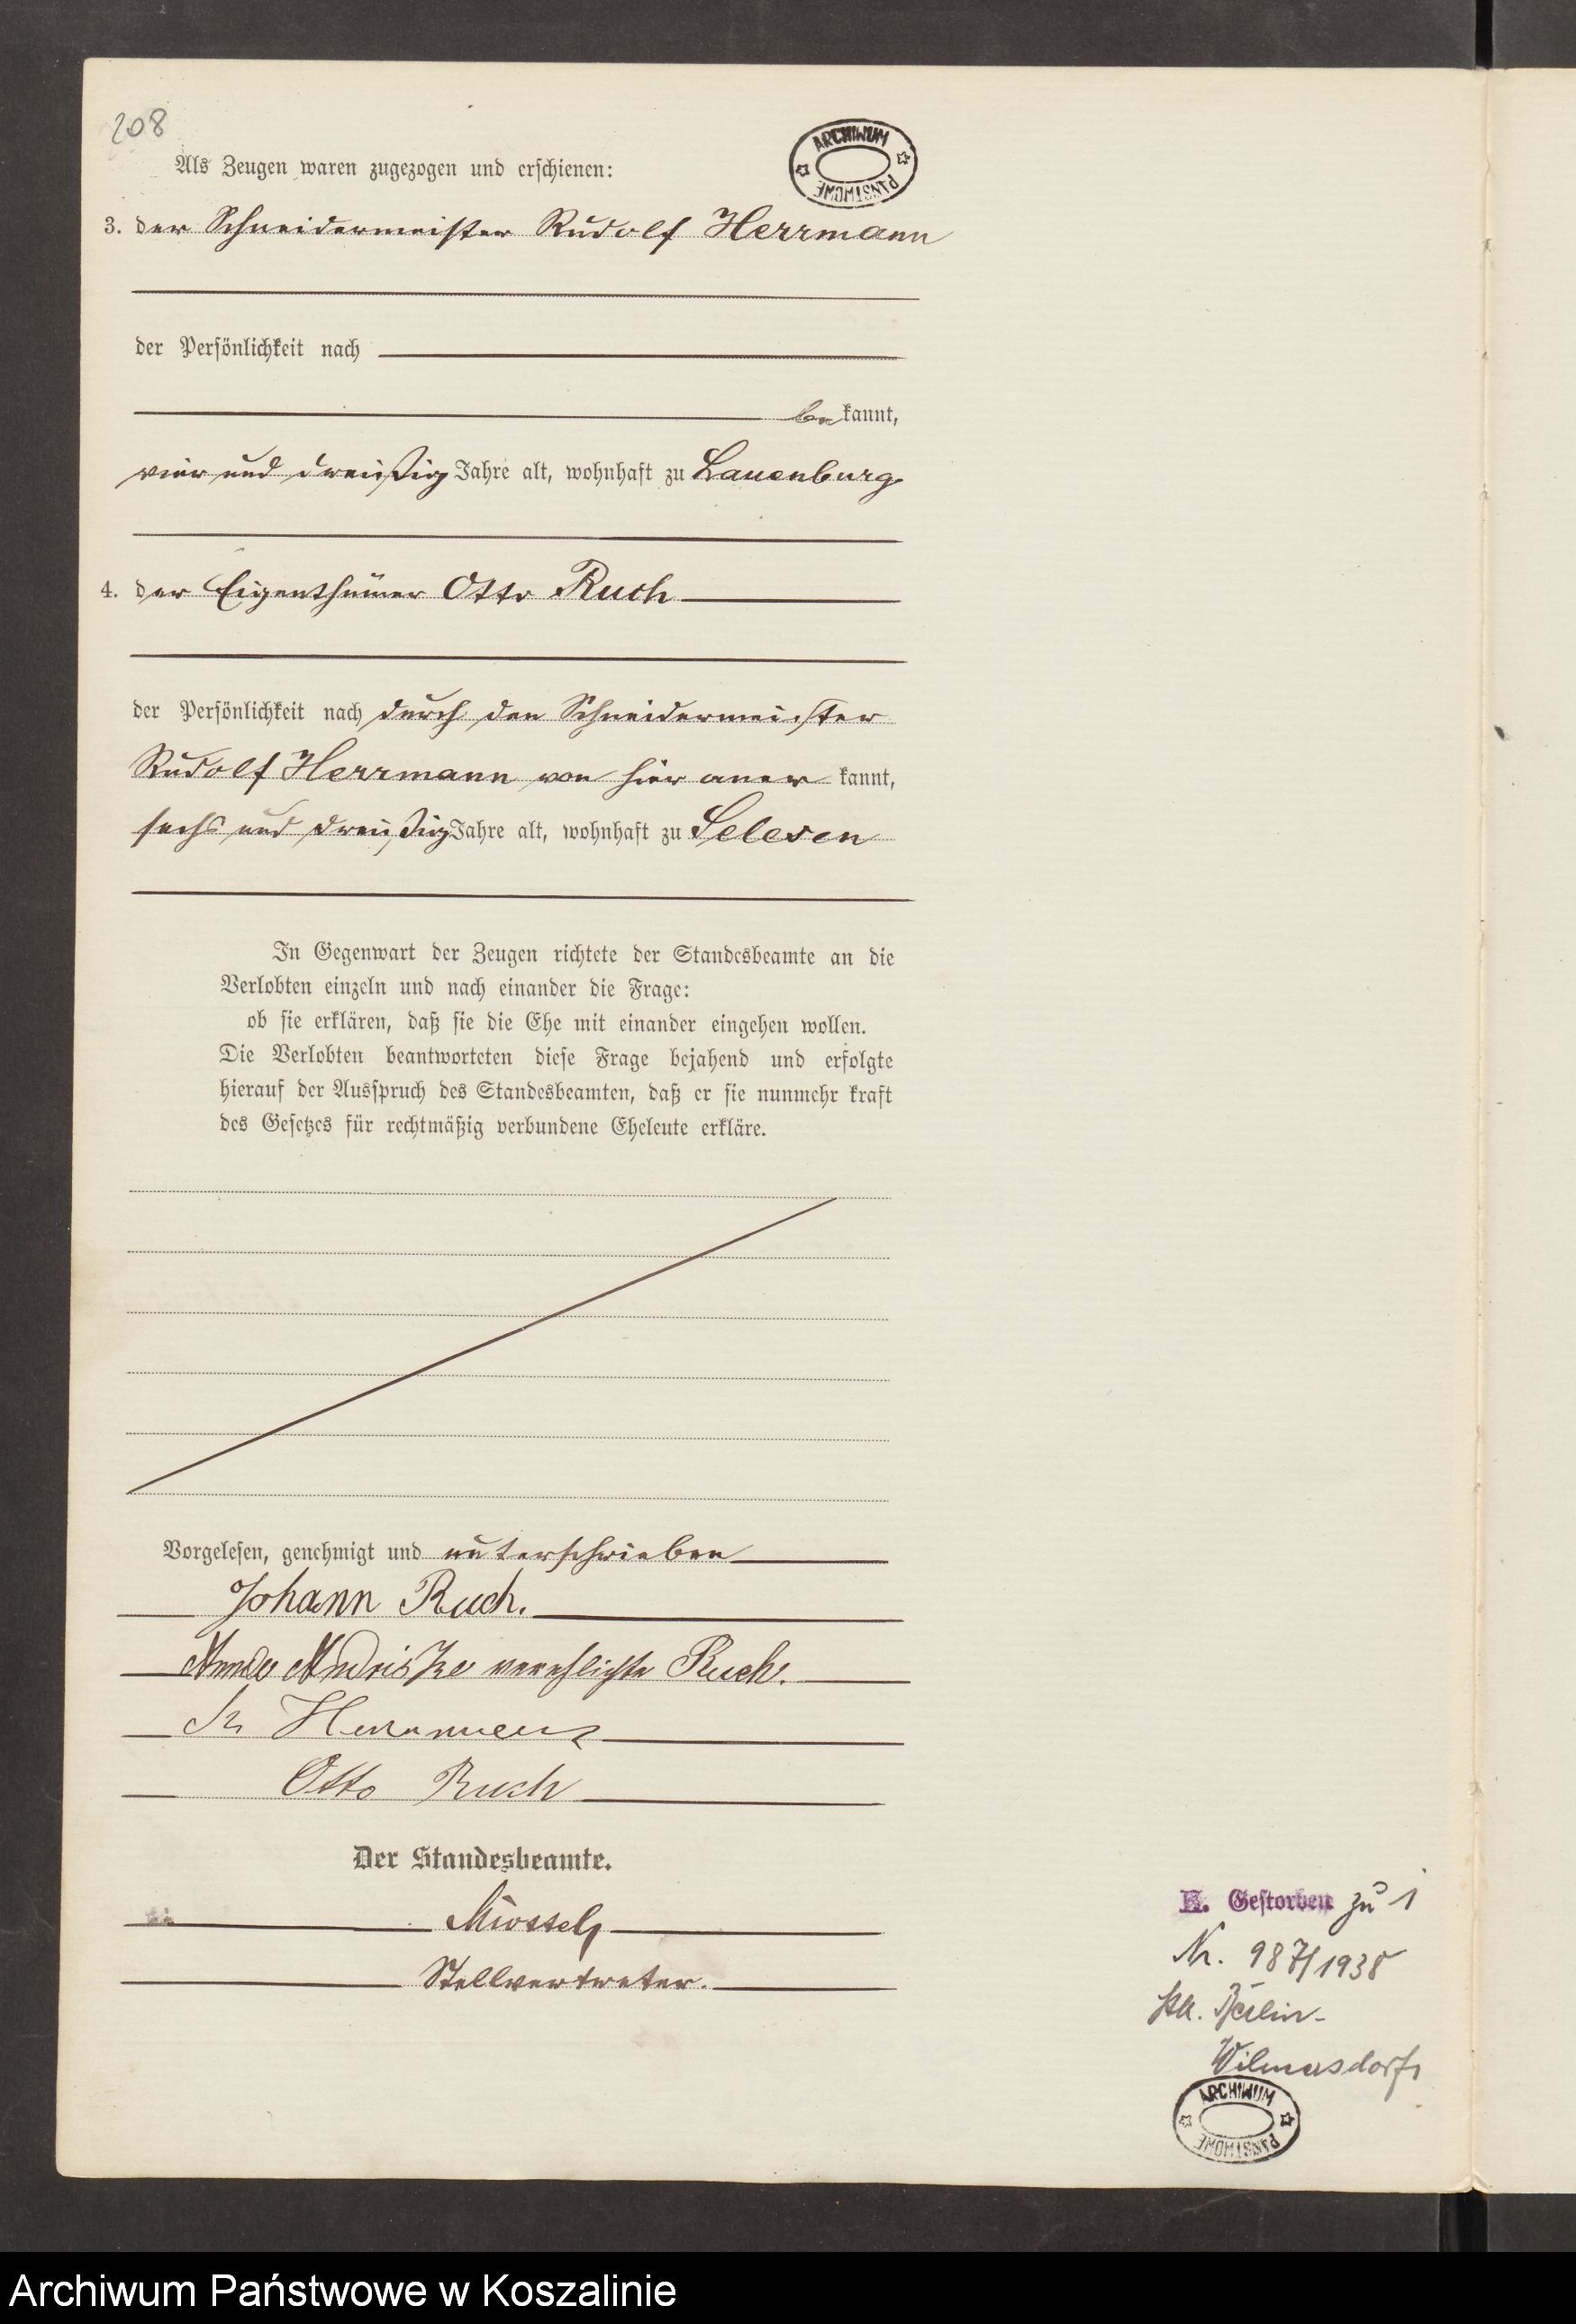 208
ARCHIWUM PAŃSTWOWE
Als Zeugen waren zugezogen und erschienen:
3. der Schneidermeister Rudolf Herrmann
der Persönlichkeit nach
bekannt,
vier und dreißig Jahre alt, wohnhaft zu Lauenburg
4. der Eigenthümer Otto Ruch
der Persönlichkeit nach durch den Schneidermeister
Rudolf Herrmann von hier aner kannt,
sechs und dreißig Jahre alt, wohnhaft zu Selesen
In Gegenwart der Zeugen richtete der Standesbeamte an die
Verlobten einzeln und nach einander die Frage:
ob sie erklären, daß sie die Ehe mit einander eingehen wollen.
Die Verlobten beantworteten diese Frage bejahend und erfolgte
hierauf der Ausspruch des Standesbeamten, daß er sie nunmehr kraft
des Gesetzes für rechtmäßig verbundene Eheleute erkläre.
Vorgelesen, genehmigt und unterschrieben
Johann Ruch.
Anna Andriske verehlichte Ruch.
R Herrmann
Otto Ruch
Der Standesbeamte.
Stellvertreter.
Gestorben zu 1
Nr. 987/1938
Berlin-
Wilmersdorf
ARCHIWUM PAŃSTWOWE
Archiwum Państwowe w Koszalinie